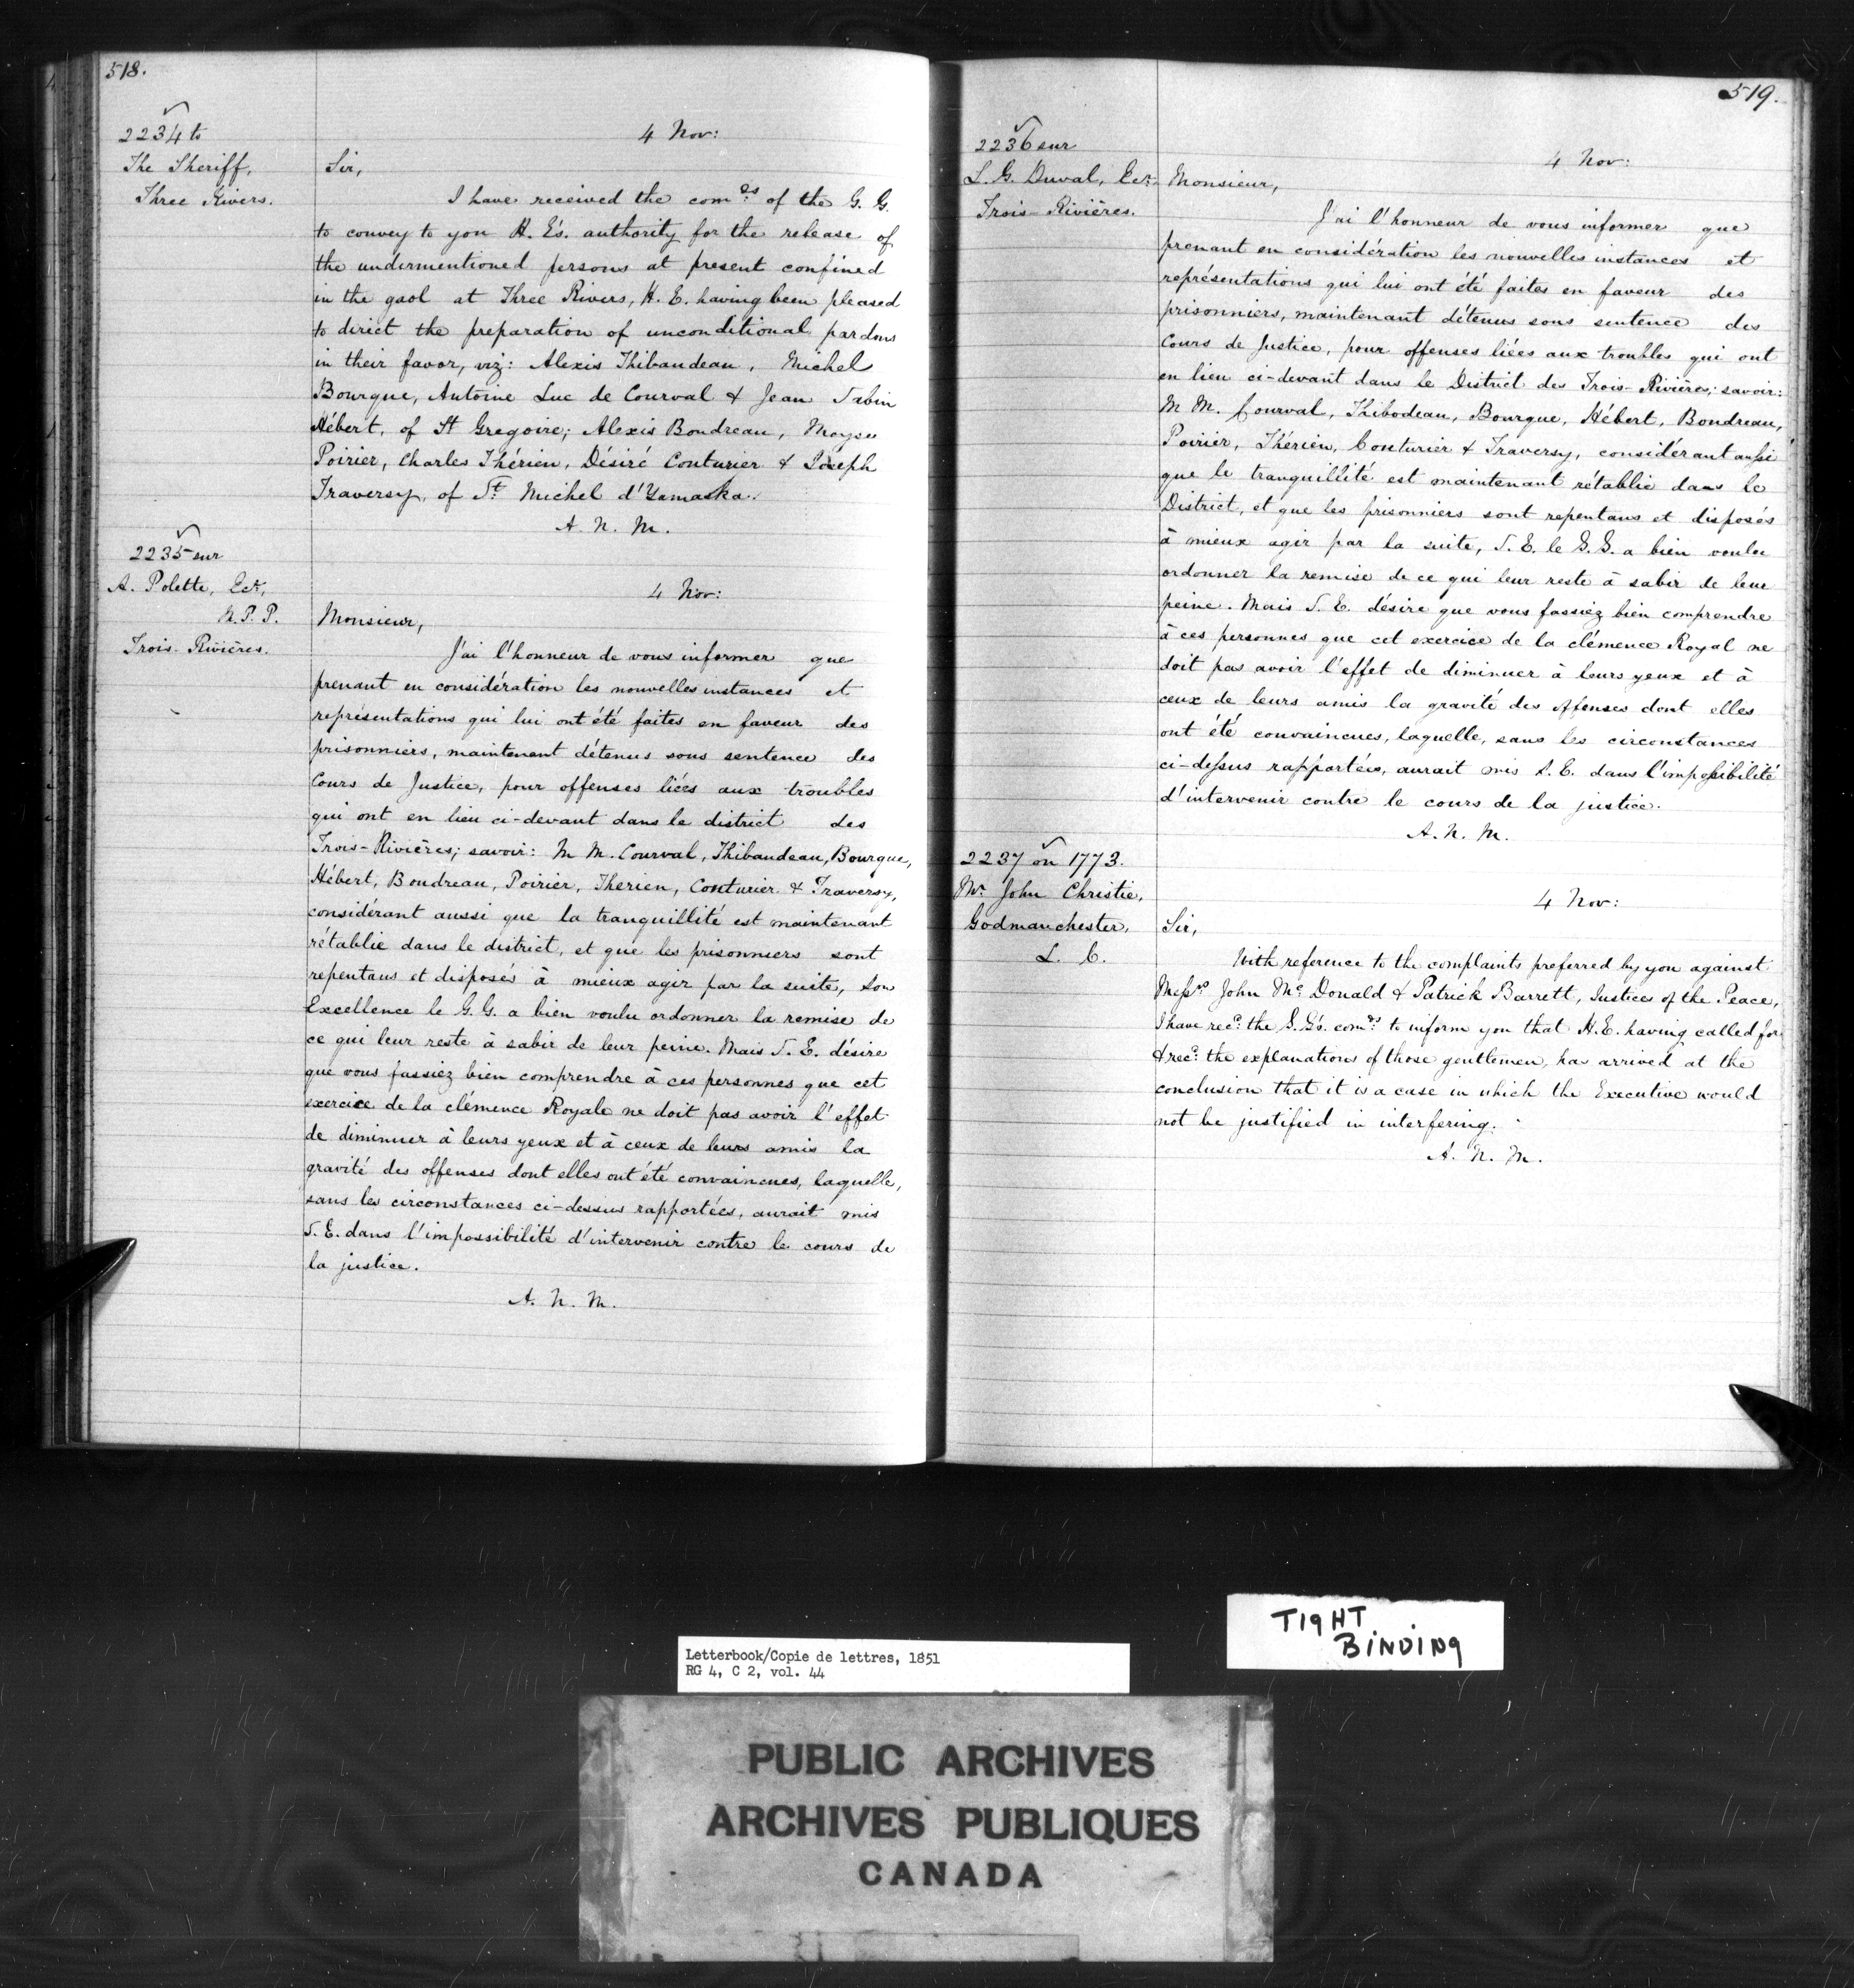 518.
2234 to
The Sheriff,
Three Rivers.
4 Nov:
Sir,
I have received the com.ds of the G. G.
to convey to you H. E's. authority for the release of
the undermentioned persons at present confined
in the gaol at Three Rivers, H. E. having been pleased
to direct the preparation of unconditional pardons
in their favor, viz: Alexis Thibaudeau, Michel
Bourque, Antoine Luc de Courval & Jean Sabin
Hébert, of St Gregoire; Alexis Boudreau, Moyse
Poirier, Charles Thérien, Désiré Couturier & Joseph
Traversy, of St. Michel d'Yamaska.
A. N. M.
2235 sur
A. Polette, Ecr,
M. P. P.
Trois-Rivières.
4 Nov:
Monsieur,
J'ai l'honneur de vous informer que
prenant en considération les nouvelles instances et
représentations qui lui ont été faites en faveur des
prisonniers, maintenant détenus sous sentence des
Cours de Justice, pour offenses liées aux troubles
qui ont eu lieu ci-devant dans le district des
Trois-Rivières; savoir: M M. Courval, Thibaudeau, Bourque,
Hébert, Boudreau, Poirier, Therien, Couturier & Traversy,
considérant aussi que la tranquillité est maintenant
rétablie dans le district, et que les prisonniers sont
repentans et disposés à mieux agir par la suite, Son
Excellence le G. G. a bien voulu ordonner la remise de
ce qui leur reste à subir de leur peine. Mais S. E. désire
que vous fassiez bien comprendre à ces personnes que cet
exercice de la clémence Royale ne doit pas avoir l'effet
de diminuer à leurs yeux et à ceux de leurs amis la
gravité des offenses dont elles ont été convaincues, laquelle,
sans les circonstances ci-dessus rapportées, aurait mis
S. E. dans l'impossibilité d'intervenir contre le cours de
la justice.
A. N. M.
519.
2236 sur
L. G. Duval, Ecr.
Trois-Rivières.
4 Nov:
Monsieur,
J'ai l'honneur de vous informer que
prenant en considération les nouvelles instances et
représentations qui lui ont été faites en faveur des
prisonniers, maintenant détenus sous sentence des
Cours de Justice, pour offenses liées aux troubles qui ont
eu lieu ci-devant dans le District des Trois-Rivières; savoir:
M M. Courval, Thibodeau, Bourque, Hébert, Boudreau,
Poirier, Thérien, Couturier & Traversy, considérant aussi
que le tranquillité est maintenant rétablie dans le
District, et que les prisonniers sont repentans et disposés
à mieux agir par la suite, S. E. le G. G. a bien voulu
ordonner la remise de ce qui leur reste à subir de leur
peine. Mais S. E. désire que vous fassiez bien comprendre
à ces personnes que cet exercice de la clémence Royal ne
doit pas avoir l'effet de diminuer à leurs yeux et à
ceux de leurs amis la gravité des offenses dont elles
ont été convaincues, laquelle, sans les circonstances
ci-dessus rapportées, aurait mis S. E. dans l'impossibilité
d'intervenir contre le cours de la justice.
A. N. M.
2237 on 1773.
Mr. John Christie,
Godmanchester,
L. C.
4 Nov:
Sir,
With reference to the complaints preferred by you against
Messrs John Mc Donald & Patrick Barrett, Justices of the Peace,
I have recd. the G. G's. comds to inform you that H. E. having called for
& recd. the explanations of those gentlemen, has arrived at the
conclusion that it is a case in which the Executive would
not be justified in interfering.
A. N. M.
TIGHT
BINDING
Letterbook/Copie de lettres, 1851
RG 4, C 2, vol. 44
PUBLIC ARCHIVES
ARCHIVES PUBLIQUES
CANADA